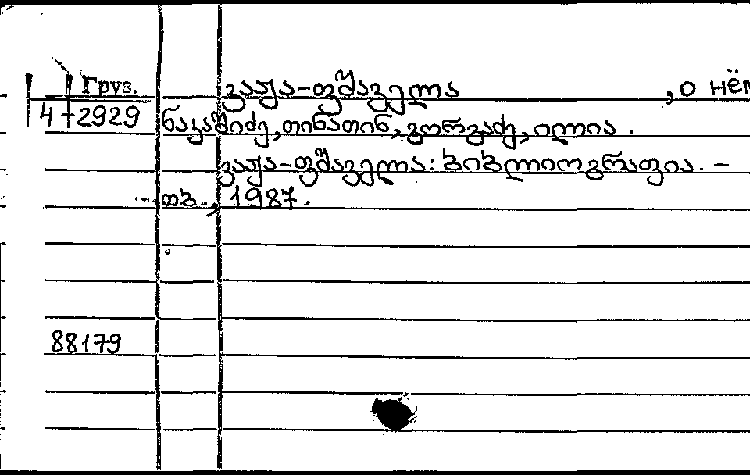 Груз. ვაჟა-ფშაველა , о нём
4-2929 ნაკაშიძე, თინათინ, გორგაძე, ილია.
ვაჟა-ფშაველა: ბიბლიოგრაფია. –
თბ., 1987.
88179